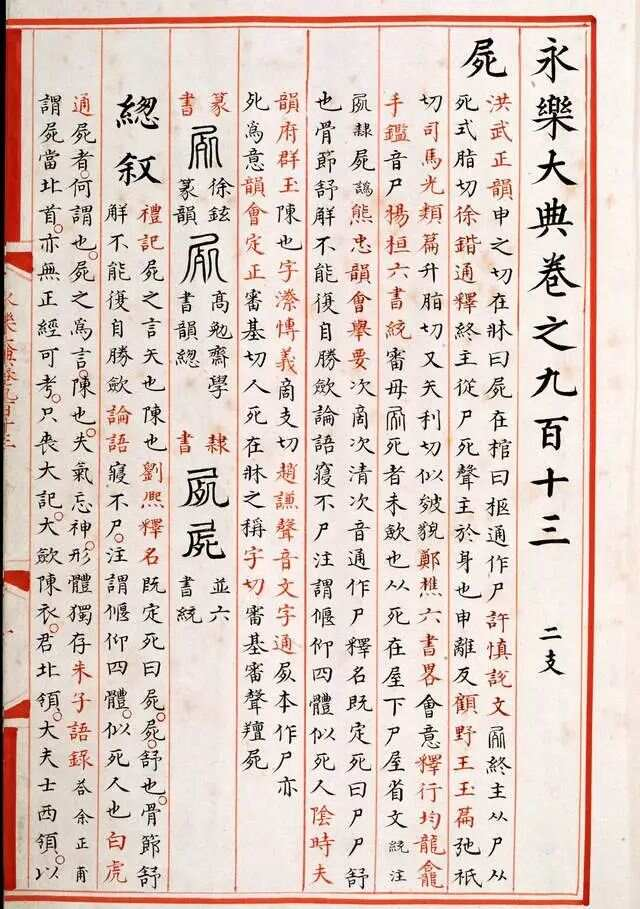 永樂大典卷之九百十三 二支
屍
洪武正韻申之切在牀曰屍在棺曰柩通作尸許慎說文終主从尸从
死式脂切徐鍇通釋終主從尸死聲主於身也申離反顧野王玉篇弛祇
切司馬光類篇升脂切又矢利切似皴貌鄭樵六書畧會意釋行均龍龕
手鑑音尸楊桓六書統審母死者未歛也从死在屋下尸屋省文統注
隸屍譌熊忠韻會舉要次商次清次音通作尸釋名既定死曰尸尸舒
也骨節舒解不能復自勝歛論語寢不尸注謂偃仰四體似死人陰時夫
韻府群玉陳也字潦愽義商支切趙謙聲音文字通本作尸亦
死為意韻會定正審基切人死在牀之稱字切審基審聲羶屍
篆書 徐鉉篆韻 高勉齋學書韻緫 隸書 屍 並六書統
緫叙
禮記屍之言矢也陳也劉熙釋名既定死曰屍屍舒也骨節舒
解不能復自勝歛論語寢不尸注謂偃仰四體似死人也白虎
通屍者何謂也屍之為言陳也失氣忘神形體獨存朱子語錄答余正甫
謂屍當北首亦無正經可考只喪大記大歛陳衣君北領大夫士西領以
永樂大典卷九百十三